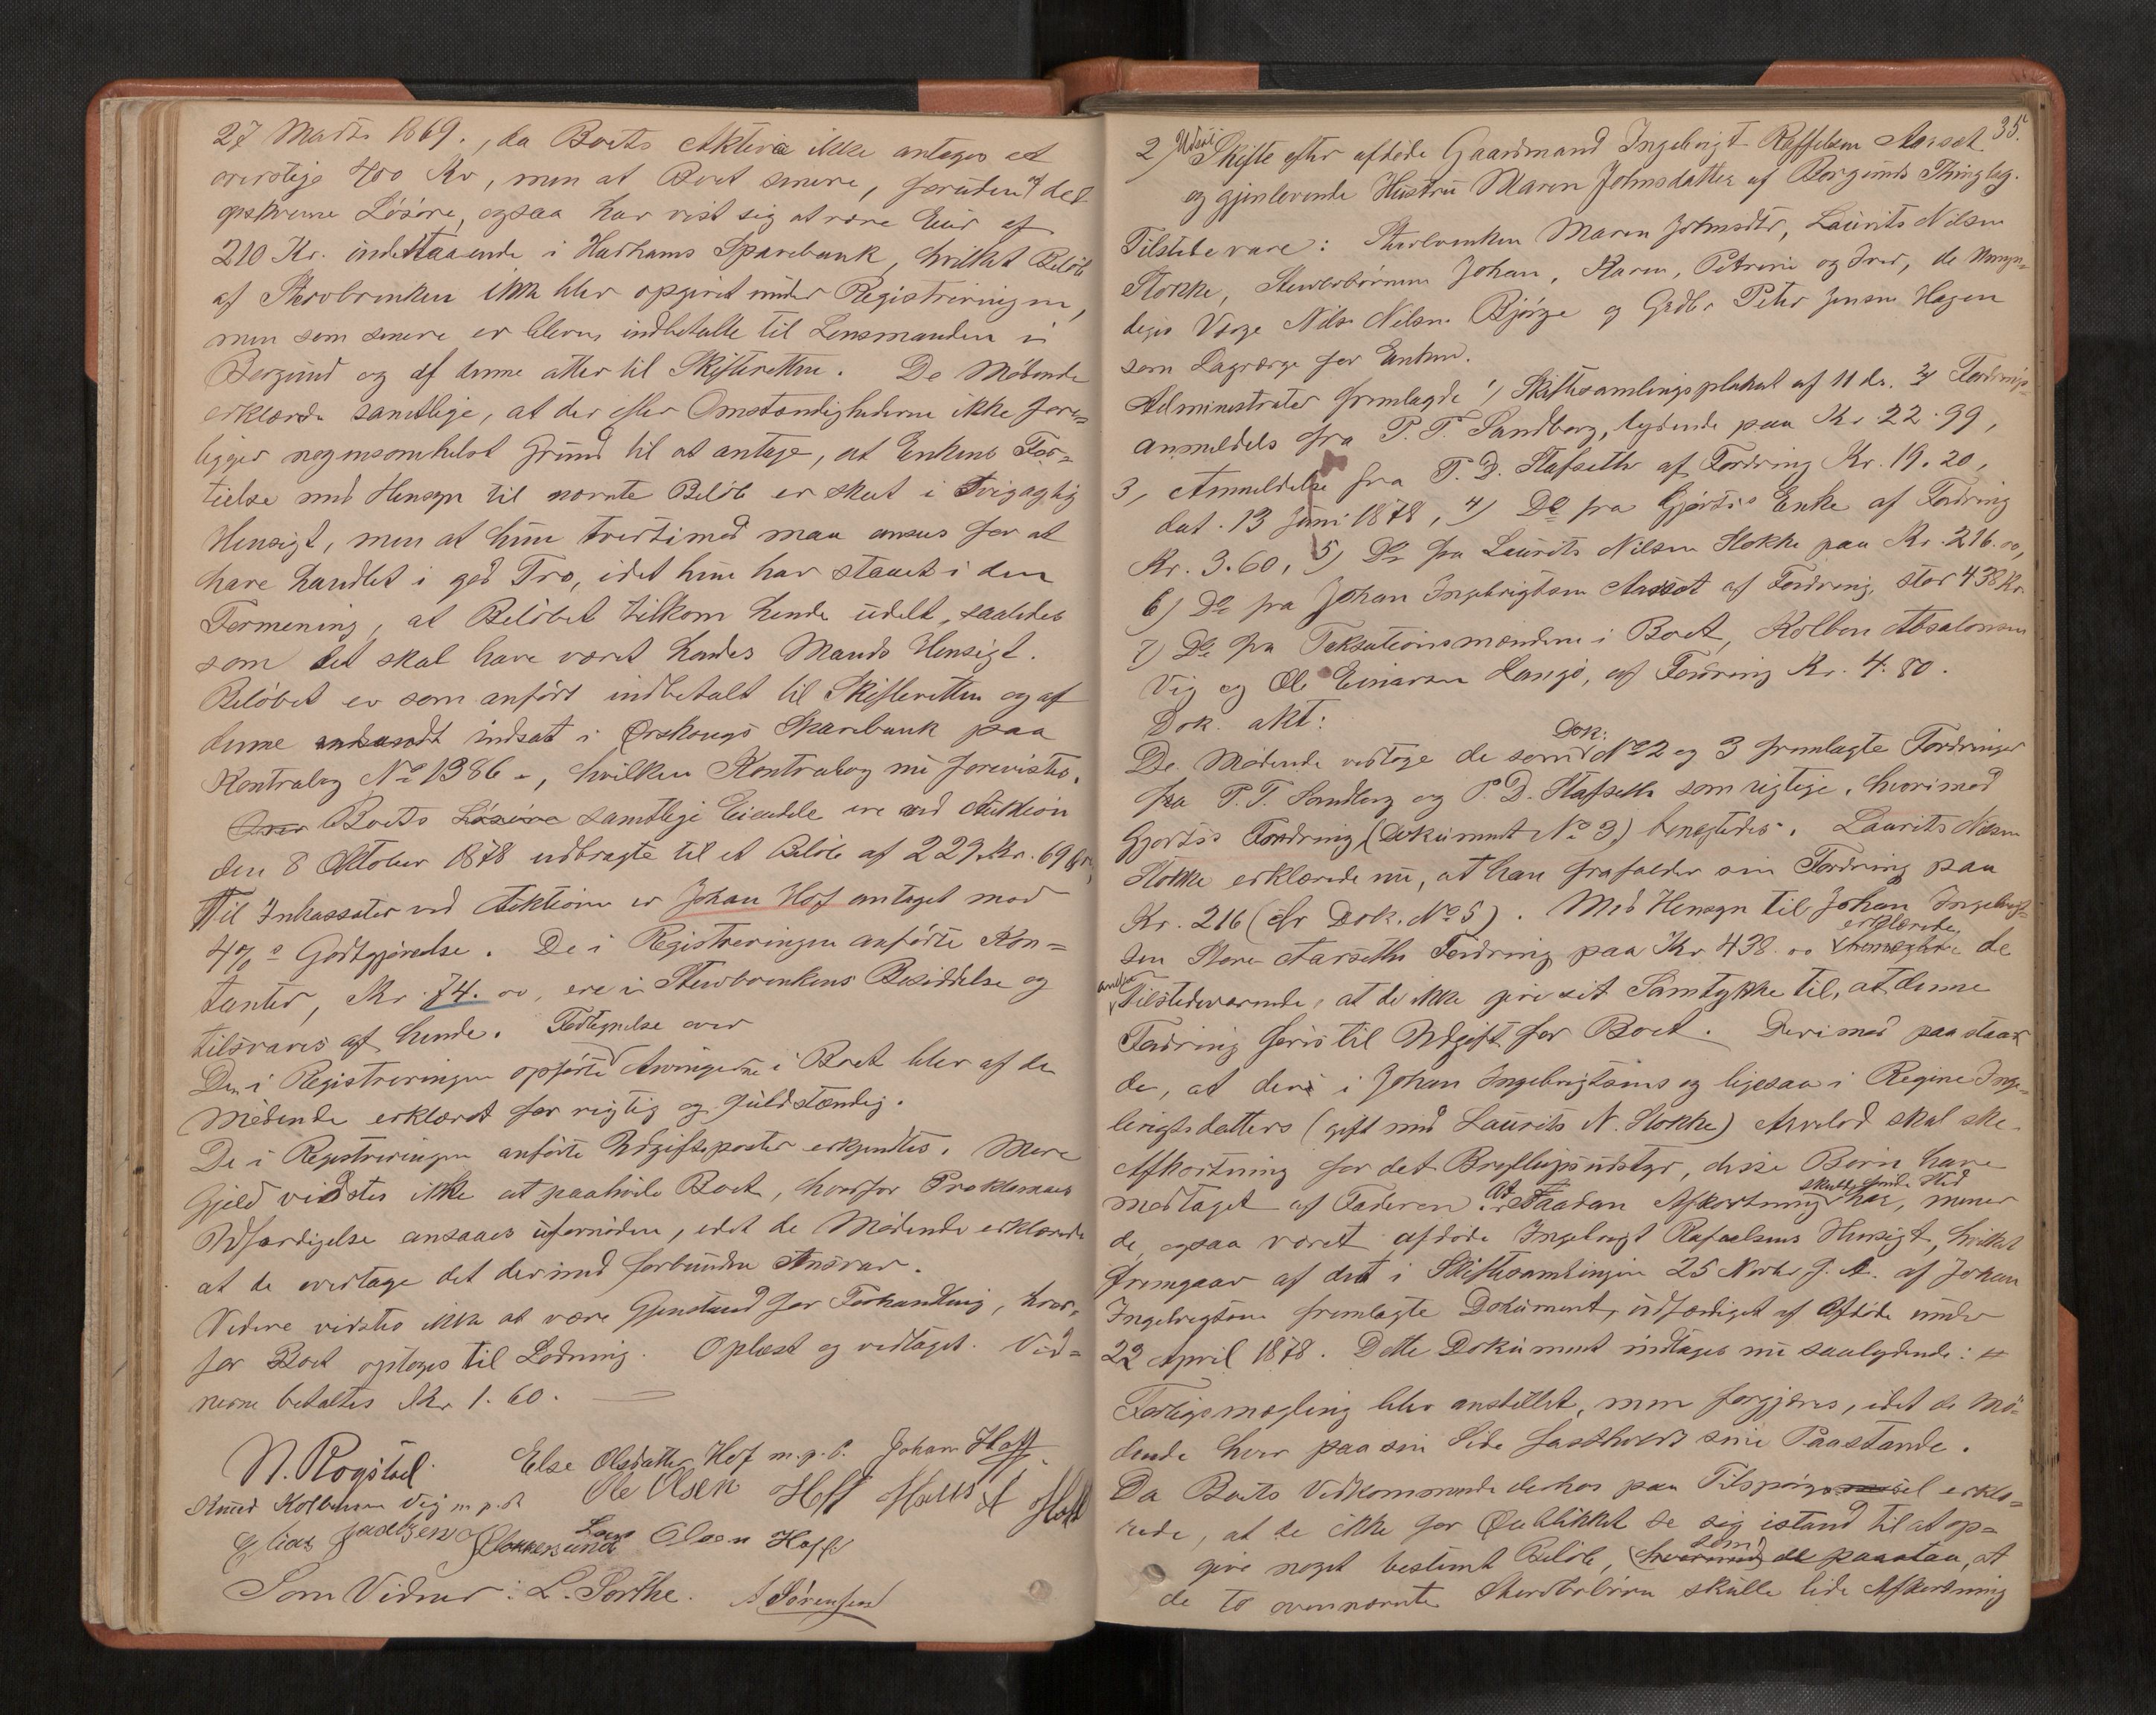 27 Marts 1869., da Boets Aktiva ikke antages at
overstige 400 Kr, men at Boet senere, foruden af det
opskrevne Lösöre, ogsaa har vist sig at være Eier af
210 Kr. indestaaende i Harhams Sparebank, hvilket Belöb
af Stervboenken ikke blev opgivet under Registreringen,
men som senere er bleven indbetalt til Lensmanden i
Borgund og af denne atter til Skifteretten. De Mödende
erklærede samtlige, at der efter Omstændighederne ikke fore=
ligger nogensomhelst Grund til at antage, at Enkens For=
tielse med Hensyn til nævnte Belöb er skeet i svigagtig
Hensigt, men at hun tvertimod maa ansees for at
have handlet i god Tro, idet hun har staaet i den
Formening, at Belöbet tilkom hende udelt, saaledes
som det skal have været hendes Mands Hensigt.
Belöbet er som anfört indbetalt til Skifteretten og af
denne indsat i Ørskougs Sparebank paa
Kontrabog No 1386 -, hvilken Kontrabog nu forevistes.
Boets Lösöre samtlige Eiendele ere ved Auktion
den 8 Oktober 1878 udbragte til et Belöb af 229 Kr. 69 Öre,
Til Inkassator ved Auktionen er Johan Hof antaget mod
4% Godtgjörelse. De i Registreringen anförte Kon=
tanter, Kr. 74. 00, ere i Stervboenkens Besiddelse og
tilsvares af hende. Fortegnelse over
Den i Registreringen opförte Arvingerne i Boet blev af de
Mödende erklæret for rigtig og fuldstændig.
De i Registreringen anförte Udgiftsposter erkjendtes. Mere
Gjeld vidstes ikke at paahvile Boet, hvorfor Proklamas
Udfærdigelse ansaaes ufornöden, idet de Mödende erklærede
at de overtage det dermed forbundne Ansvar.
Videre vidstes ikke at være Gjenstand for Forhandling, hvor=
for Boet optoges til Lodning. Oplæst og vedtaget. Vid=
nerne betaltes Kr 1. 60.
N. Rogstad. Else Olsdatter Hof m. p. P. Johan Hoff
Knud Kolbensen Vig m. p. P. Ole Olsen Hoff
Elias Jacobsen Lars Olsen Hoff
Som Vidner: L. Sorthe. Sörensen
35.
2) Udsat Skifte efter afdöde Gaardmand Ingebrigt Raffelsen Aarset
og gjenlevende Hustru Maren Johnsdatter af Borgunds Thinglag.
Tilstede vare: Stervboenken Maren Johnsdtr, Laurits Nilsen
Stokke, Stervbobørnene Johan, Karen, Petrine og Iver, de Umyn=
diges Værge Nils Nilsen Bjørge og Grdbr Peter Jensen Hagen
som Lagværge for Enken.
Administrator fremlagde 1) Skiftesamlingsplakat af 11 ds. 2) Fordrings=
anmeldelse fra P. T. Sandborg, lydende paa Kr. 22. 99,
3, Anmeldelse fra P. D. Stafseth af Fordring Kr. 19. 20,
dat. 13 Juni 1878, 4) Do fra Gjörtz's Enke af Fordring
Kr. 3.60, 5) Do fra Laurits Nilsen Stokke paa Kr. 216.00,
6) Do fra Johan Ingebrigtsen Aarset af Fordring, stor 438 Kr.
7) Do fra Taksationsmændene i Boet, Kolben Absalonsen
Vig og Ole Einarsen Hangö, af Fordring Kr. 4. 80.
Dok. akt:
De Mödende vedtoge de som Dok: No 2 og 3 fremlagte Fordringer
fra P. T. Sandborg og P. D. Stafseth som rigtige, hvorimod
Gjørtz's Fordring (Dokument No 3) benegtedes. Laurits Nilsen
Stokke erklærede nu, at han frafalder sin Fordring paa
Kr. 216 (cfr Dok. No 5). Med Hensyn til Johan Ingebrigt=
sen Aarseths Fordring paa Kr 438. 00 erklærede de
andre Tilstedeværende, at de ikke give sit Samtykke til, at denne
Fordring föres til Udgift for Boet. Derimod paastaar
de, at der i Johan Ingebrigtsens og ligesaa i Regine Inge=
brigtsdatters (gift med Laurits N. Stokke) Arvelod skal ske
Afkortning for det Bryllupsudstyr, disse Börn have
modtaget af Faderen. At saadan Afkortning skulde finde Sted har, mener
de, ogsaa været afdöde Ingebrigt Rafaelsens Hensigt, hvilket
fremgaar af det i Skiftesamlingen 25 Novbr f. A. af Johan
Ingebrigtsen fremlagte Dokument, udfærdiget af Afdöde under
22 April 1878. Dette Dokument indtages nu saalydende:
Forligsmægling blev anstillet, men forgjæves, idet de Mö=
dende hver paa sin Side fastholdt sine Paastande.
Da Boets Vedkommende derhos paa Tilspörgsel erklæ=
rede, at de ikke for Øieblikket se sig istand til at op=
give noget bestemt Belöb, som de paastaa, at
de to ovennævnte Stervbobörn skulle lide Afkortning